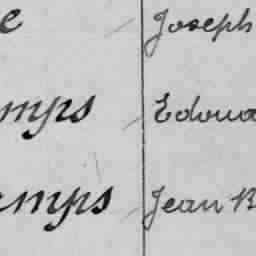 e Joseph
mps Edoua
emps Jean B